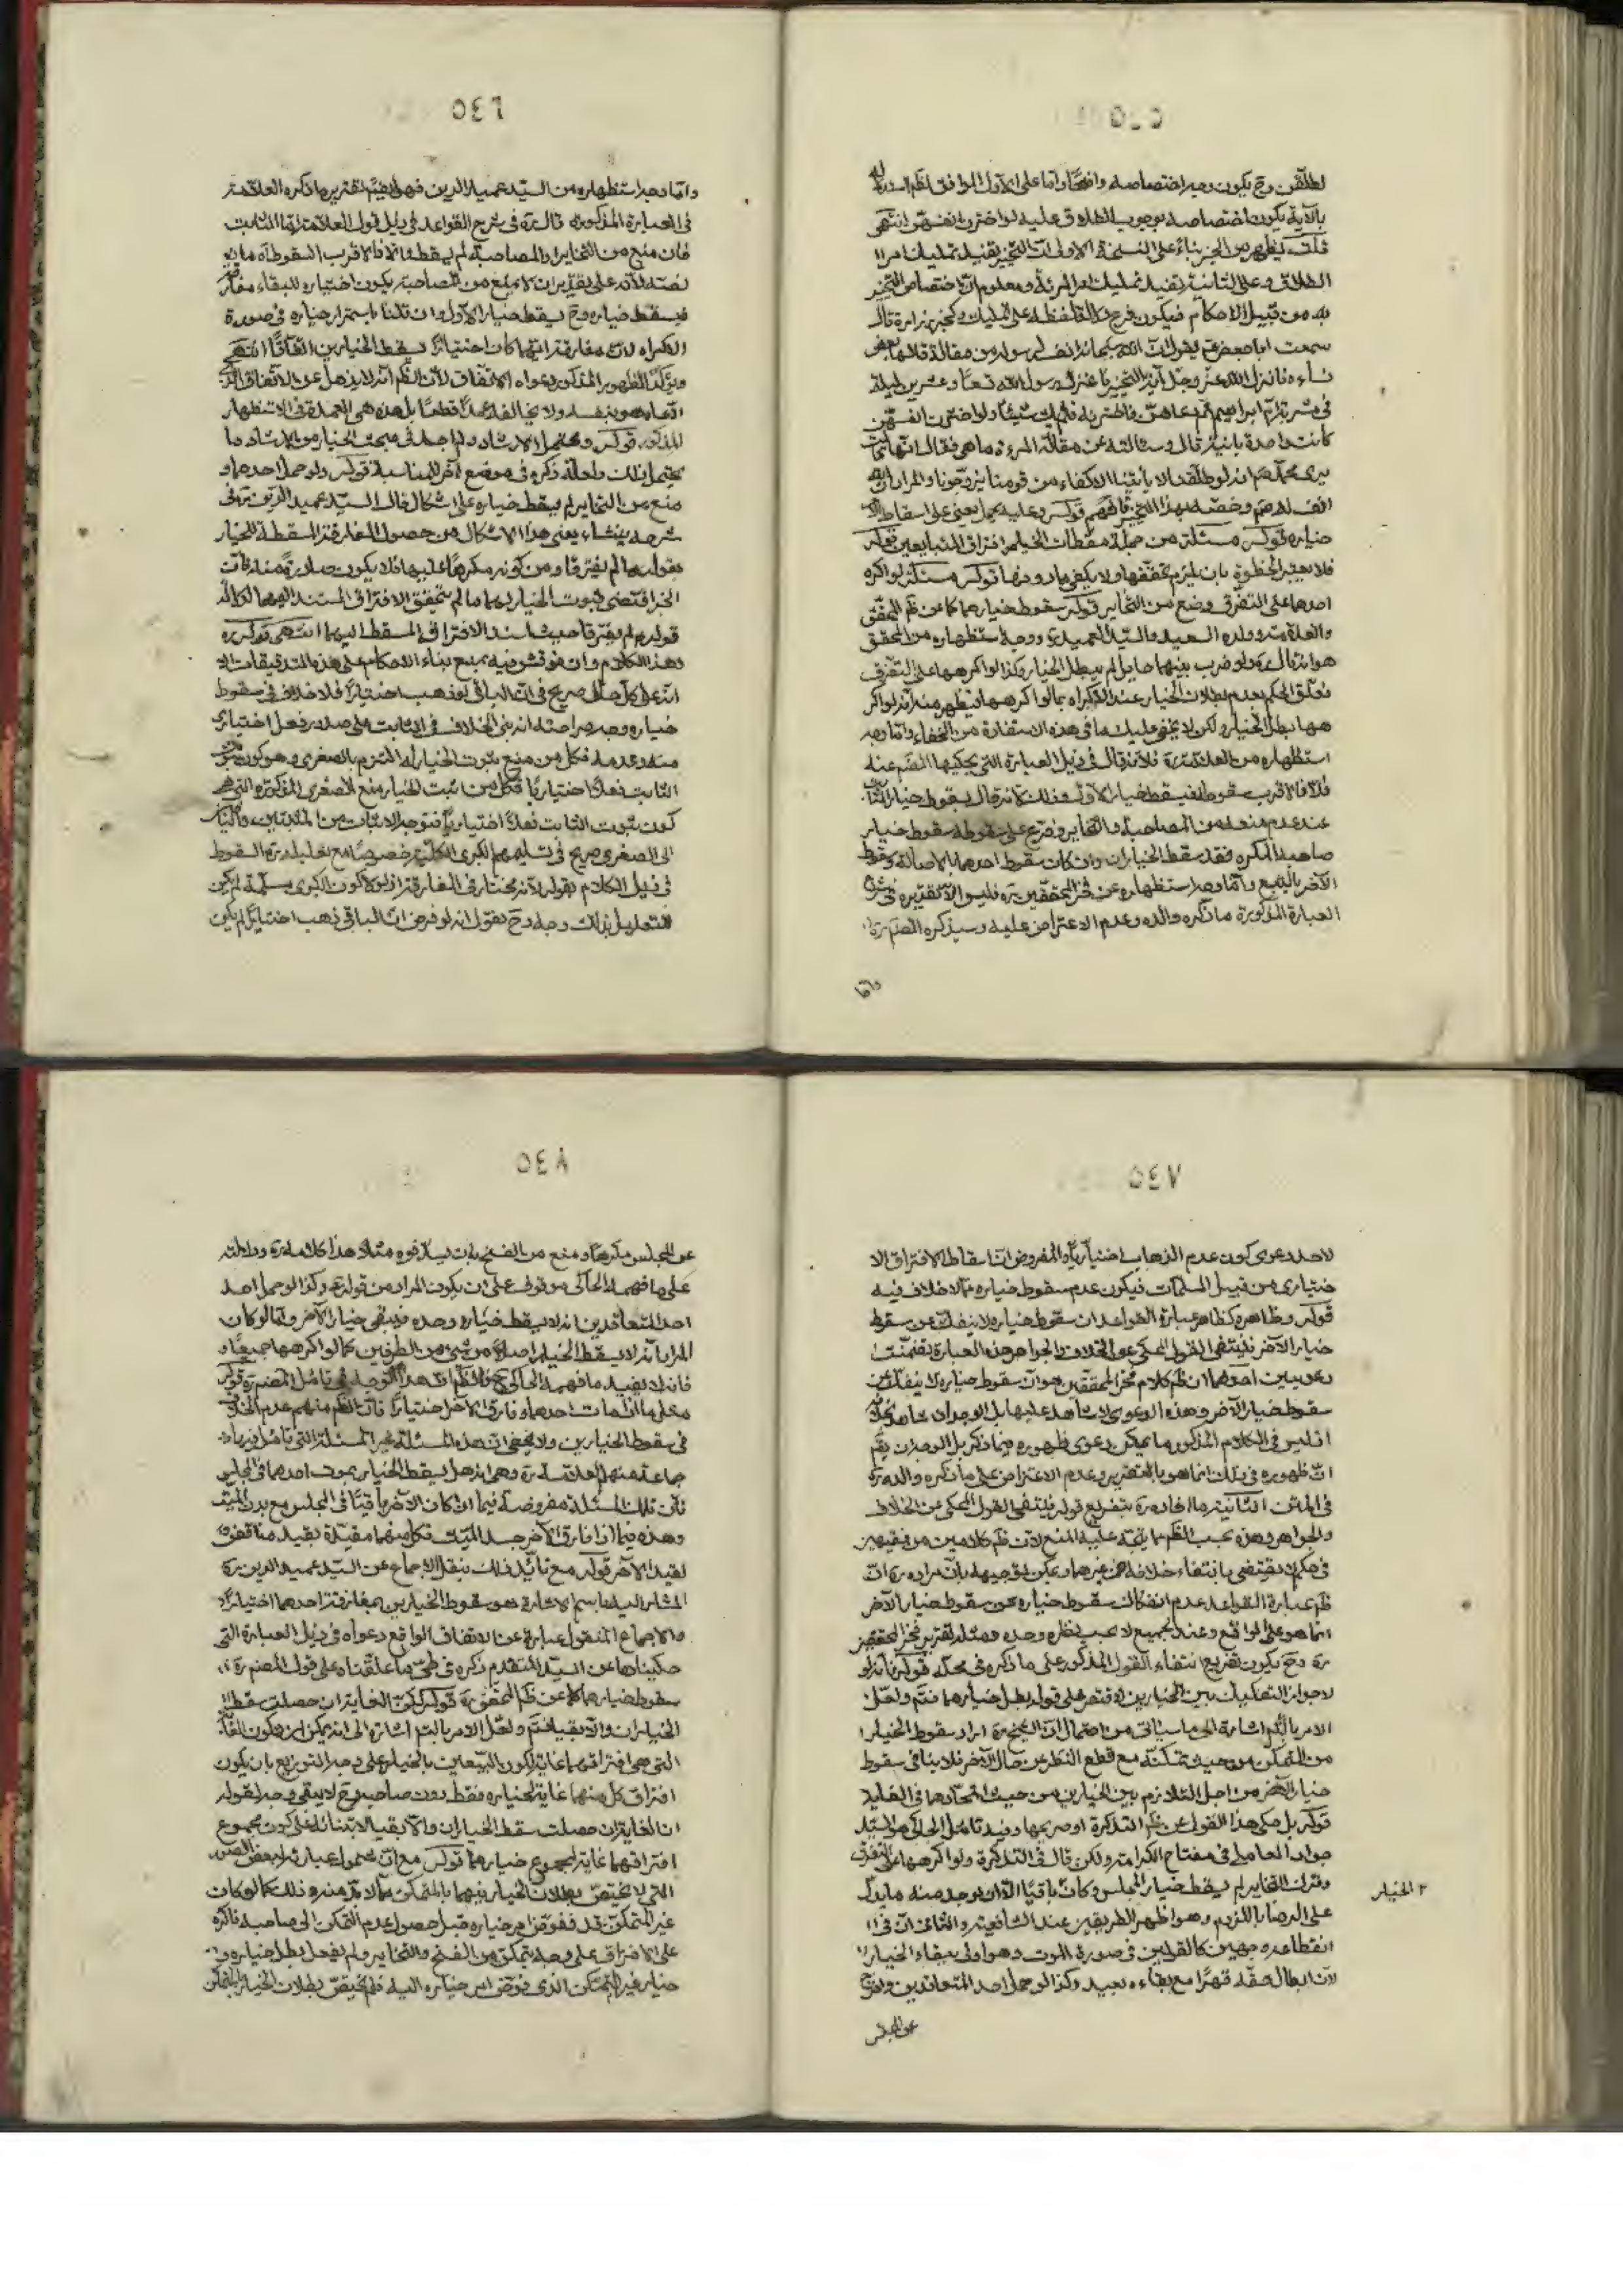 ٥٤٥
لطلّقن وح يكون وجه اختصاصه واضحًا وامّا على الاوّل الموافق لظم
بالآية يكون اختصاصه بوجوب الطلاق عليه لو اخترن انفسهنّ انتهى
قلت يظهر من الجزء بناءً على النسخة الاولى انّ التخيير يفيد تمليك امر
الطلاق وعلى الثانية يفيد تمليك امر المرئة ومعلوم انّ اختصاص التخيير
به من قبيل الاحكام فيكون
سمعت ابا جعفر ع يقول انّ الله من مقالة قالها بعض
نساءه فانزل الله عزّ وجلّ آية التخيير فاعتزل رسول الله تسعًا وعشرين ليلة
في مشربة امّ ابراهيم ثم دعاهنّ فاخترنه فلم يك شيئًا ولو اخترن انفسهنّ
كانت واحدة باينة قال وسئالته عن مقالة المرءة ما هي فقال انّها قالت
يرى محمّد ص انه لو طلّقنا لا يأتينا الاكفاء من قومنا يتزوّجونا والمراد
قوله وعليه يحمل يعنى على اسقاط
خياره قوله مسئلة من جملة مسقطات الخيار افتراق المتبايعين قوله
فلا يعتبر الخطوة بان يلزم تحقّقها ولا يكفى ما دونها قوله مسئلة لو اكره
احدهما على التفرق ومنع من التخاير قوله سقوط خيارهما كما عن ظم المحقّق
والعلامة وولده السعيد والسيّد العميد ووجه استظهاره من المحقق
هو انّه قال ولو ضرب بينهما حايل لم يبطل الخيار وكذا لو اكرهما على التفرّق
فعلّق الحكم بعدم بطلان الخيار عند الاكراه بما لو اكرههما فيظهر منه انّه لو اكر
هما بطل الخيار ولكن لا يخفى عليك ما فى هذه الاستفادة من الخفاء وامّا وجه
استظهاره من العلامة ره فلانّه قال فى ذيل العبارة التى يحكيها المصنّف عنه
فلا فالاقرب سقوطه فيسقط خيار الاوّل وذلك لانّه قال بسقوط خيار الثابت
عند عدم منعه من المصاحبة والتخاير وفرّع على سقوطه سقوط خيار
صاحبه المكره فقد سقط الخياران وان كان سقوط احدهما بالاصالة وسقوط
الآخر بالتبع وامّا وجه استظهاره عن فخر المحققين ره فليس الّا تقريره فى شرح
العبارة المذكورة ما ذكره والده وعدم الاعتراض عليه وسيذكره المصنّف ره
وامّا
٥٤٦
وامّا وجه استظهاره من السيّد عميد الدين فهو ايضًا تقرير ما ذكره العلامة
فى العبارة المذكورة قال ره فى شرح القواعد فى ذيل قول العلامة امّا الثابت
فان منع من التخاير او المصاحبة لم يسقط والّا فالاقرب السقوط آه ما
نصّه لانّه على تقدير ان لا يمنع من المصاحبة يكون اختياره للبقاء مفارقة
فيسقط خياره وح يسقط خيار الاوّل وان قلنا باستمرار خياره فى صورة
الاكراه لانّ مفارقة ايّهما كان اختيارًا يسقط الخيارين اتّفاقًا انتهى
ويؤكّد الظهور المذكور دعواه الاتّفاق لانّ الظّم انّه لا يذهل عن الاتّفاق الّذى
ادّعاه هو بنفسه ولا يخالفه عمدًا قطعًا بل هذه هى العمدة فى الاستظهار
المذكور قوله ويحتمل الارشاد ولم اجد فى مبحث الخيار من الارشاد ما
يحتمل ذلك ولعلّه ذكره فى موضع آخر للمناسبة قوله ولو حمل احدهما و
منع من التخاير لم يسقط خياره على اشكال قال السيّد عميد الدين ره فى
شرحه ينشاء يعنى هذا الاشكال من حصول المفارقة المسقطة للخيار
بقوله ما لم يفترقا ومن كونه مكرهًا عليها فلا يكون صادرة منه فانّ
الخبر اقتضى ثبوت الخيار لهما ما لم يتحقق الافتراق المستند اليهما لدلالة
قوله ما لم يفترقا حيث اسند الافتراق المسقط اليهما انتهى قوله ره
وهذا الكلام وان نوقش فيه بمنع بناء الاحكام على هذه التدقيقات الّا
انّه على كلّ حال صريح فى انّ الباقى لو ذهب اختيارًا فلا خلاف فى سقوط
خياره وجه صراحته انه بنى الخلاف فى الثابت على صدور فعل اختيارى
منه وعدمه فكلّ من منع ثبوت الخيار له التزم بالصغرى وهو كون ثبوت
الثابت فعلًا اختياريًا وكلّ من اثبت الخيار منع الصغرى المذكورة التى هى
كون ثبوت الثابت فعلًا اختياريًا
الى الصغرى صريح فى تسليمهم الكبرى الكليّة خصوصًا مع تعليله ره السقوط
فى ذيل الكلام بقوله لانّه مختار فى المفارقة اذ لولا كون الكبرى مسلّمة لم يكن
للتعليل بذلك وجه وح نقول انه لو فرض انّ الباقى ذهب اختيارًا لم يكن
٥٤٧
لاحد دعوى كون عدم الذهاب اختياريًا والمفروض انّ اسقاط الافتراق الا
ختيارى من قبيل المسلّمات فيكون عدم سقوط خياره ممّا لا خلاف فيه
قوله وظاهره كظاهر عبارة القواعد ان سقوط خياره لا ينفك عن سقوط
خيار الآخر فينتفى القول المحكى عن الخلاف والجواهر هذه العبارة تضمّنت
دعويين احدهما ان ظم كلام فخر المحققين هو انّ سقوط خياره لا ينفكّ عن
سقوط خيار الآخر وهذه الدعوى لا شاهد عليها بل الوجدان شاهد بخلافه
اذ ليس فى الكلام المذكور ما يمكن دعوى ظهوره فيما ذكر بل الوجدان
انّ ظهوره فى ذلك انما هو بالتقرير وعدم الاعتراض على ما ذكره والده ره
فى المتن الثانية ما افاده ره بتفريع قوله فينتفى القول المحكى عن الخلاف
والجواهر وهذه بحسب الظّم ممّا يتّجه عليه المنع لانّ ظم كلامين من فقيهين
فى حكم لا يقتضى بانتفاء خلافه عن غيرهما ويمكن توجيهه بانّ مراده ره انّ
ظم عبارة القواعد عدم انفكاك سقوط خياره عن سقوط خيار الآخر
انما هو على الواقع وعند الجميع لا بحسب نظره وحده ومثله تقرير فخر المحققين
ره وح يكون تفريع انتفاء القول المذكور على ما ذكره فى محلّه قوله فانّه لو
لا جواز التفكيك بين الخيارين لاقتصر على قوله بطل خيارهما فتم ولعلّ
الامر بالتّم اشارة الى ما سياتى من احتمال انّ الشيخ ره اراد سقوط الخيار
من المتمكّن من حيث تمكّنه مع قطع النظر عن حال الآخر فلا ينافى سقوط
خيار الآخر من اجل التلازم بين الخيارين من حيث اتّحادهما فى الغاية
قوله بل حكى هذا القول عن ظم التذكرة او صريحها وفيه تامّل الحاكى هو السيّد
جواد العاملى فى مفتاح الكرامة ولكن قال فى التذكرة ولو اكرهما على التفرق
وترك التخاير لم يسقط خيار المجلس وكان باقيًا الّا ان يوجد منه ما يدلّ
على الرضا باللزوم وهو اظهر الطريقين عند الشافعية والثانى انّ فى
انقطاعه وجهين كالقولين فى صورة الموت وهو اولى ببقاء الخيار
لانّ ابطال حقّه قهرًا مع بقاءه بعيد وكذا لو حمل احد المتعاقدين واخرج
٢ الخيار
عن المجلس
٥٤٨
عن المجلس مكرهًا ومنع من الفسخ بان يسدّ فوه مثلا هذا كلامه ره ودلالته
على ما فهمه الحاكى موقوف على ان يكون المراد من قوله وكذا لو حمل احد
احد المتعاقدين انه لا يسقط خياره وحده فيبقى خيار الآخر وامّا لو كان
المراد انّه لا يسقط الخيار اصلًا من شىء من الطرفين كما لو اكرههما جميعًا و
فانه لا يفيد ما فهمه الحاكى والظم ان هذا الوجه فى تامّل المصنّف ره قوله
محلّ ما اذا مات احدهما وفارق الآخر اختيارًا فانّ الظم منهم عدم الخلاف
فى سقوط الخيارين ولا يخفى ان هذه المسئلة غير المسئلة التى تامّل فيها
جماعة منهم العلامة ره وهى انه هل يسقط الخيار بموت احدهما فى المجلس
فانّ تلك المسئلة مفروضة فيما اذا كان الآخر باقيًا فى المجلس مع بدن الميّت
وهذه فيما اذا فارق الآخر جسد الميّت فكلّ منهما مقيّدة بقيد مناقض
لقيد الآخر قوله مع تايّد ذلك بنقل الاجماع عن السيّد عميد الدين ره
المشار اليه باسم الاشارة هو سقوط الخيارين بمفارقة احدهما اختيارًا
والاجماع المنقول عبارة عن الاتفاق الواقع دعواه فى ذيل العبارة التى
حكيناها عن السيّد المتقدم ذكره فى طىّ ما علّقناه على قول المصنّف ره
سقوط خيارهما كما عن ظم المحقّق ره قوله لكنّ الغاية ان حصلت سقط
الخياران والّا بقيا فتم ولعلّ الامر بالتم اشارة الى انه يمكن ان يكون الغاية
التى هى افتراقهما غاية لكون البيّعين بالخيار على وجه التوزيع بان يكون
افتراق كلّ منهما غاية لخياره فقط دون صاحبه وح لا يبقى وجه لقوله
انّ الغاية ان حصلت سقط الخياران والّا بقيا لابتنائه على كون مجموع
افتراقهما غاية لمجموع خيارهما قوله مع انّ شمول عبارته لبعض الصور
التى لا يختصّ بطلان الخيار فيها بالمتمكّن ممّا لا بدّ منه وذلك كما لو كان
غير المتمكّن قد فوّض امر خياره قبل حصول عدم التمكن الى صاحبه فاكره
على الافتراق على وجه يتمكّن من الفسخ والتخاير ولم يفعل بطل خياره و
خيار غير المتمكّن الذى فوّض امر خياره اليه فلم يختصّ بطلان الخيار بالمتمكّن